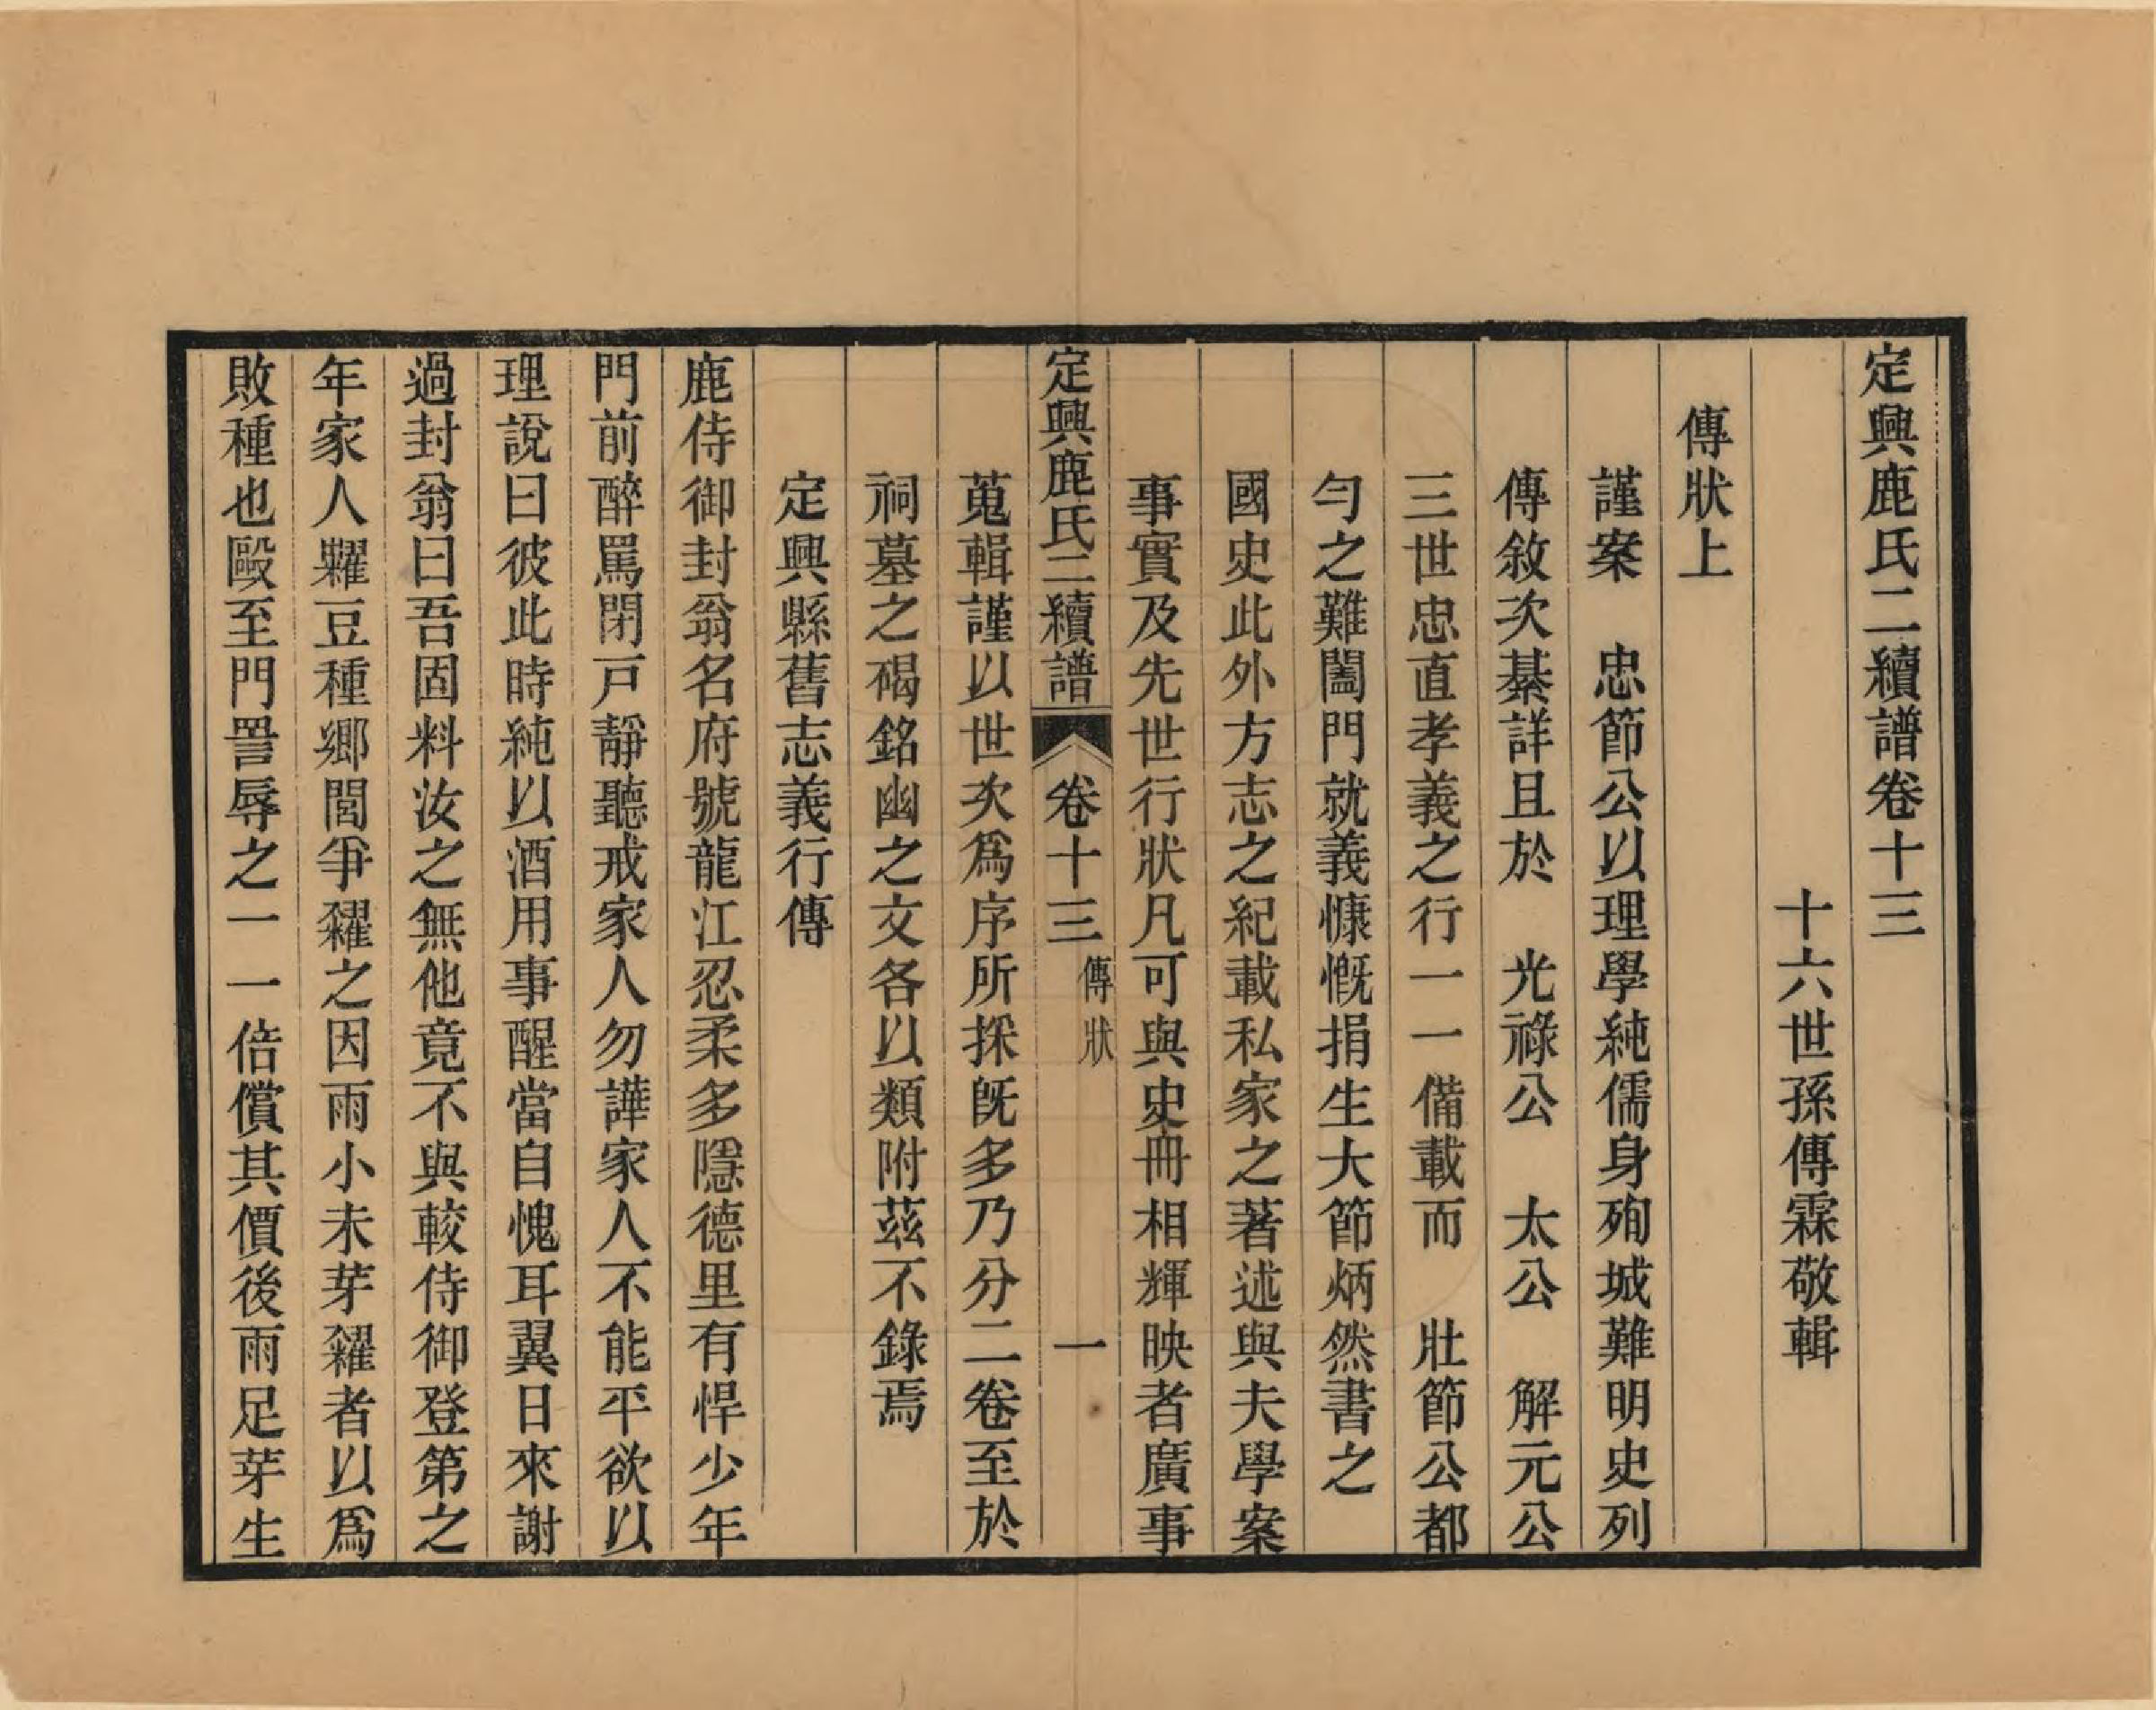 定興鹿氏二續譜卷十三
十六世孫傳霖敬輯
傳狀上
謹案　忠節公以理學純儒身殉城難明史列
傳敘次綦詳且於　光祿公　太公　解元公
三世忠直孝義之行一一備載而　壯節公都
勻之難闔門就義慷慨捐生大節炳然書之
國史此外方志之紀載私家之著述與夫學案
事實及先世行狀凡可與史冊相輝映者廣事
定興鹿氏二續譜　卷十三　傳狀　一
蒐輯謹以世次爲序所採旣多乃分二卷至於
祠墓之碣銘幽之文各以類附茲不錄焉
定興縣舊志義行傳
鹿侍御封翁名府號龍江忍柔多隱德里有悍少年
門前醉罵閉戸靜聽戒家人勿譁家人不能平欲以
理說曰彼此時純以酒用事醒當自愧耳翼日來謝
過封翁曰吾固料汝之無他竟不與較侍御登第之
年家人糶豆種鄉閭爭糴之因雨小未芽糴者以爲
敗種也毆至門詈辱之一一倍償其價後雨足芽生